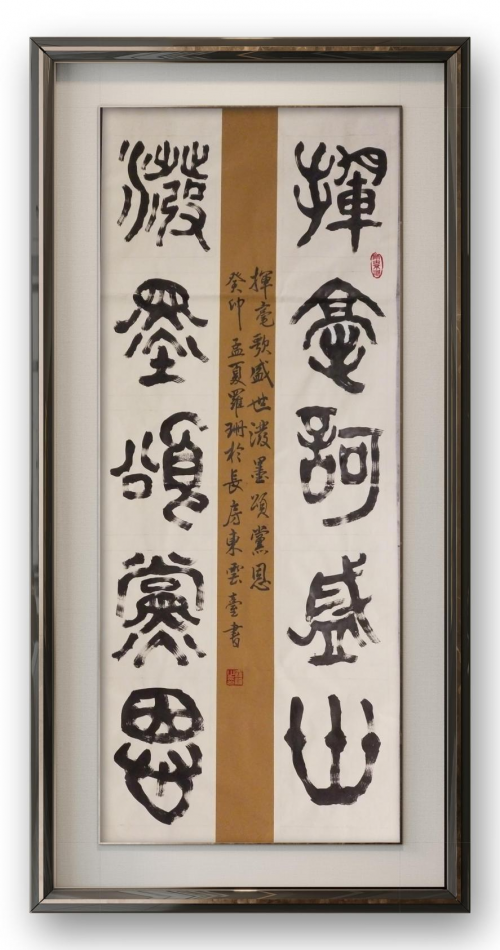 揮毫歌盛世
潑墨頌黨恩
揮毫歌盛世潑墨頌黨恩
癸卯孟夏羅珊於長房東雲臺書